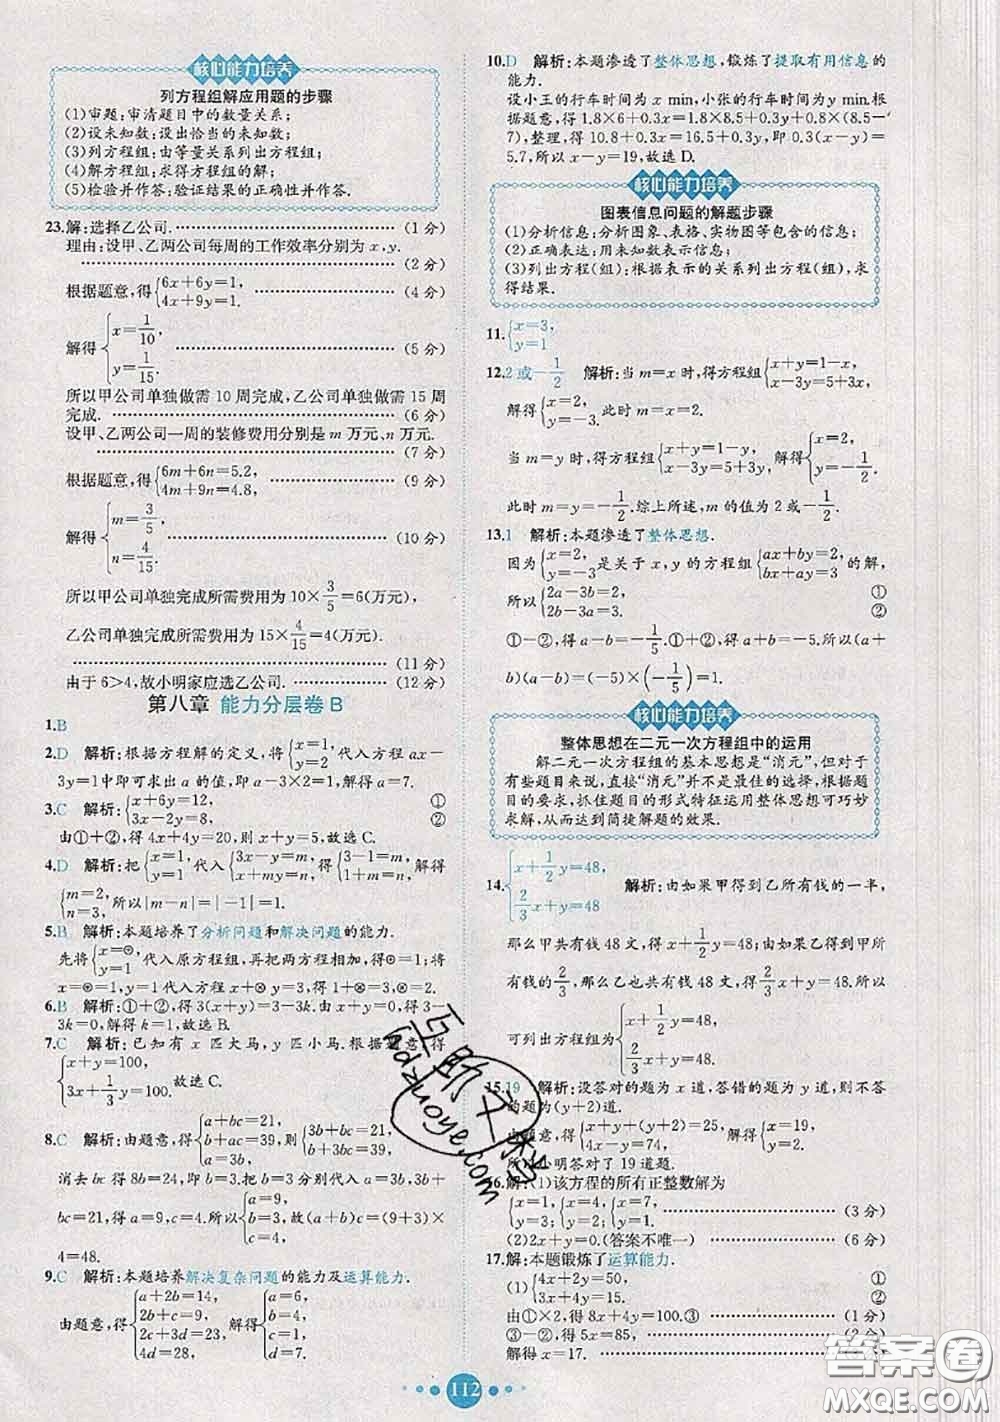 核心能力培养
列方程组解应用题的步骤
(1)审题:审清题目中的数量关系;
(2)设未知数:设出恰当的未知数;
(3)列方程组:由等量关系列出方程组;
(4)解方程组:求出方程组的解;
(5)检验并作答:验证结果的正确性并作答.
23.解:选择乙公司. (1分)
理由:设甲、乙两公司每周的工作效率分别为x,y.
(2分)
根据题意,得{6x+6y=1, 4x+9y=1. (4分)
解得{x=1/10, y=1/15. (5分)
所以甲公司单独做需10周完成,乙公司单独做需15周
完成. (6分)
设甲、乙两公司一周的装修费用分别是m万元、n万元.
(7分)
根据题意,得{6m+6n=5.2, 4m+9n=4.8, (9分)
解得{m=3/5, n=4/15. (10分)
所以甲公司单独完成所需费用为10×3/5=6(万元),
乙公司单独完成所需费用为15×4/15=4(万元).
(11分)
由于6>4,故小明家应选乙公司. (12分)
第八章 能力分层卷B
1.B
2.D 解析:根据方程解的定义,将{x=1, y=2代入方程ax-
3y=1中即可求出a的值,即a-3×2=1,解得a=7.
3.C 解析:{x+6y=12, ① 3x-2y=8, ②
由①+②,得4x+4y=20,则x+y=5,故选C.
4.D 解析:把{x=1, y=1代入{3x-y=m, x+my=n,得{3-1=m, 1+m=n,解得
{m=2, n=3,所以|m-n|=|2-3|=1.
5.B 解析:本题培养了分析问题和解决问题的能力.
先将{x=⊗, y=1代入原方程组,再把两方程相加,得⊗=1;将
x=⊗=1,y=1代入方程x+y=⊛,得1+⊗=⊛=2.
6.B 解析:①+②,得3(x+y)=3-3k.由x+y=0,得3-
3k=0,解得k=1,故选B.
7.C 解析:已知有x匹大马,y匹小马.根据题意,得
{x+y=100, 3x+1/3y=100. 故选C.
8.C 解析:由题意,得{a+bc=21, b+ac=39, a+b=12,则{3b+bc=21, b+bc=
消去bc得8b=24,即b=3,把b=3代入a+bc=21,3b+
bc=21,得a=9,c=4.所以{a=9, b=3, c=4,故(a+b)c=(9+3)×
4=48.
9.C 解析:本题培养解决复杂问题的能力及运算能力.
由题意,得{a+2b=14, 2b+c=9, 2c+3d=23, 4d=28, 解得{a=6, b=4, c=1, d=7. 故选C.
10.D 解析:本题渗透了整体思想,锻炼了提取有用信息的
能力.
设小王的行车时间为x min,小张的行车时间为y min,根
据题意,得1.8×6+0.3x=1.8×8.5+0.3y+0.8×(8.5-
7),整理,得10.8+0.3x=16.5+0.3y,即0.3(x-y)=
5.7,所以x-y=19,故选D.
核心能力培养
图表信息问题的解题步骤
(1)分析信息:分析图象、表格、实物图等包含的信息;
(2)正确表达:用未知数表示信息;
(3)列出方程(组):根据表示的关系列出方程(组),求
得结果.
11.{x=3, y=1
12.2或-1/2 解析:当m=x时,得方程组{x+y=1-x, x-3y=5+3x,
解得{x=2, y=-3.此时m=x=2.
当m=y时,得方程组{x+y=1-y, x-3y=5+3y,解得{x=2, y=-1/2.
此时m=y=-1/2.综上所述,m的值为2或-1/2.
13.1 解析:本题渗透了整体思想.
因为{x=2, y=-3是关于x,y的方程组{ax+by=2, bx+ay=3的解,
所以{2a-3b=2, ① 2b-3a=3. ②
①-②,得a-b=-1/5.①+②,得a+b=-5.所以(a+
b)(a-b)=(-5)×(-1/5)=1.
核心能力培养
整体思想在二元一次方程组中的运用
解二元一次方程组的基本思想是“消元”,但对于
有些题目来说,直接“消元”并不是最佳的选择,根据题
目的要求,抓住题目的形式特征运用整体思想可巧妙
求解,从而达到简捷解题的效果.
14.{x+1/2y=48, 2/3x+y=48 解析:由如果甲得到乙所有钱的一半,
那么甲共有钱48文,得x+1/2y=48;由如果乙得到甲所
有钱的2/3,那么乙也共有钱48文,得2/3x+y=48,
可列方程组为{x+1/2y=48, 2/3x+y=48.
15.19 解析:设答对的题为x道,答错的题为y道,则不答
的题为(y+2)道.
由题意,得{x+y+(y+2)=25, 4x-y=74, 解得{x=19, y=2.
所以小明答对了19道题.
16.解:(1)该方程的所有正整数解为
{x=1, y=4, {x=4, y=2, {x=7, y=... (3分)
(2)2x+y=0.(答案不唯一) (6分)
17.解:本题锻炼了运算能力.
(1){4x+2y=50, ① 3x+4y=15. ②
由①×2,得8x+4y=100.③ (1分)
③-②,得5x=85, (2分)
解得x=17.
112
互助文档
hdzuoye.com
答案圈
MXQE.COM